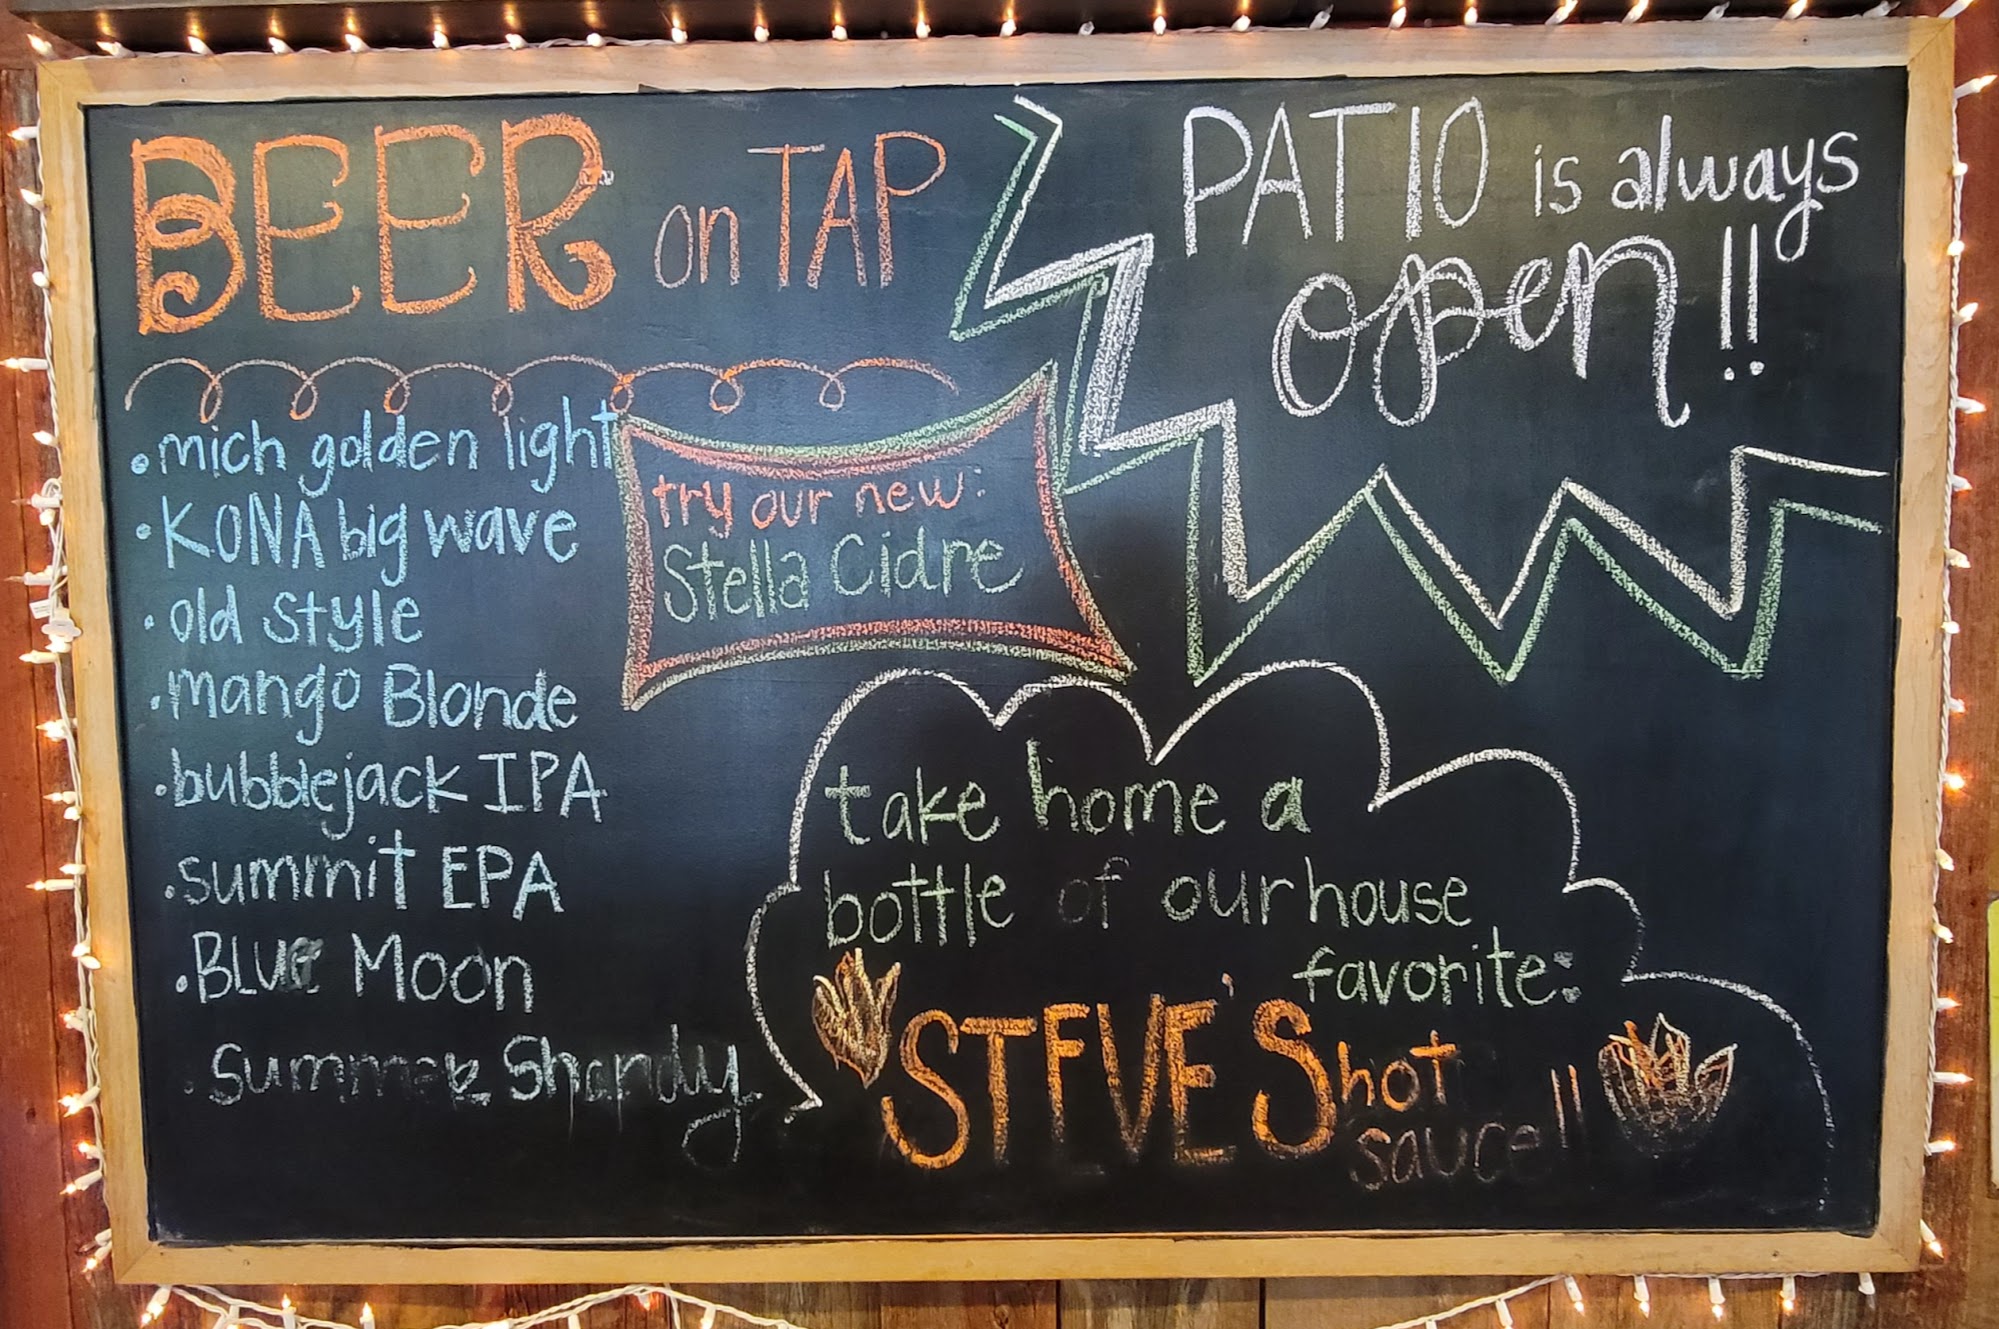 BEER on TAP
• mich golden light
• KONA big wave
• old style
• mango Blonde
• bubblejack IPA
• summit EPA
• BLUE Moon
• summer Shandy
try our new:
Stella Cidre
PATIO is always
open!!
take home a
bottle of our house
favorite:
STEVE'S hot
sauce!!